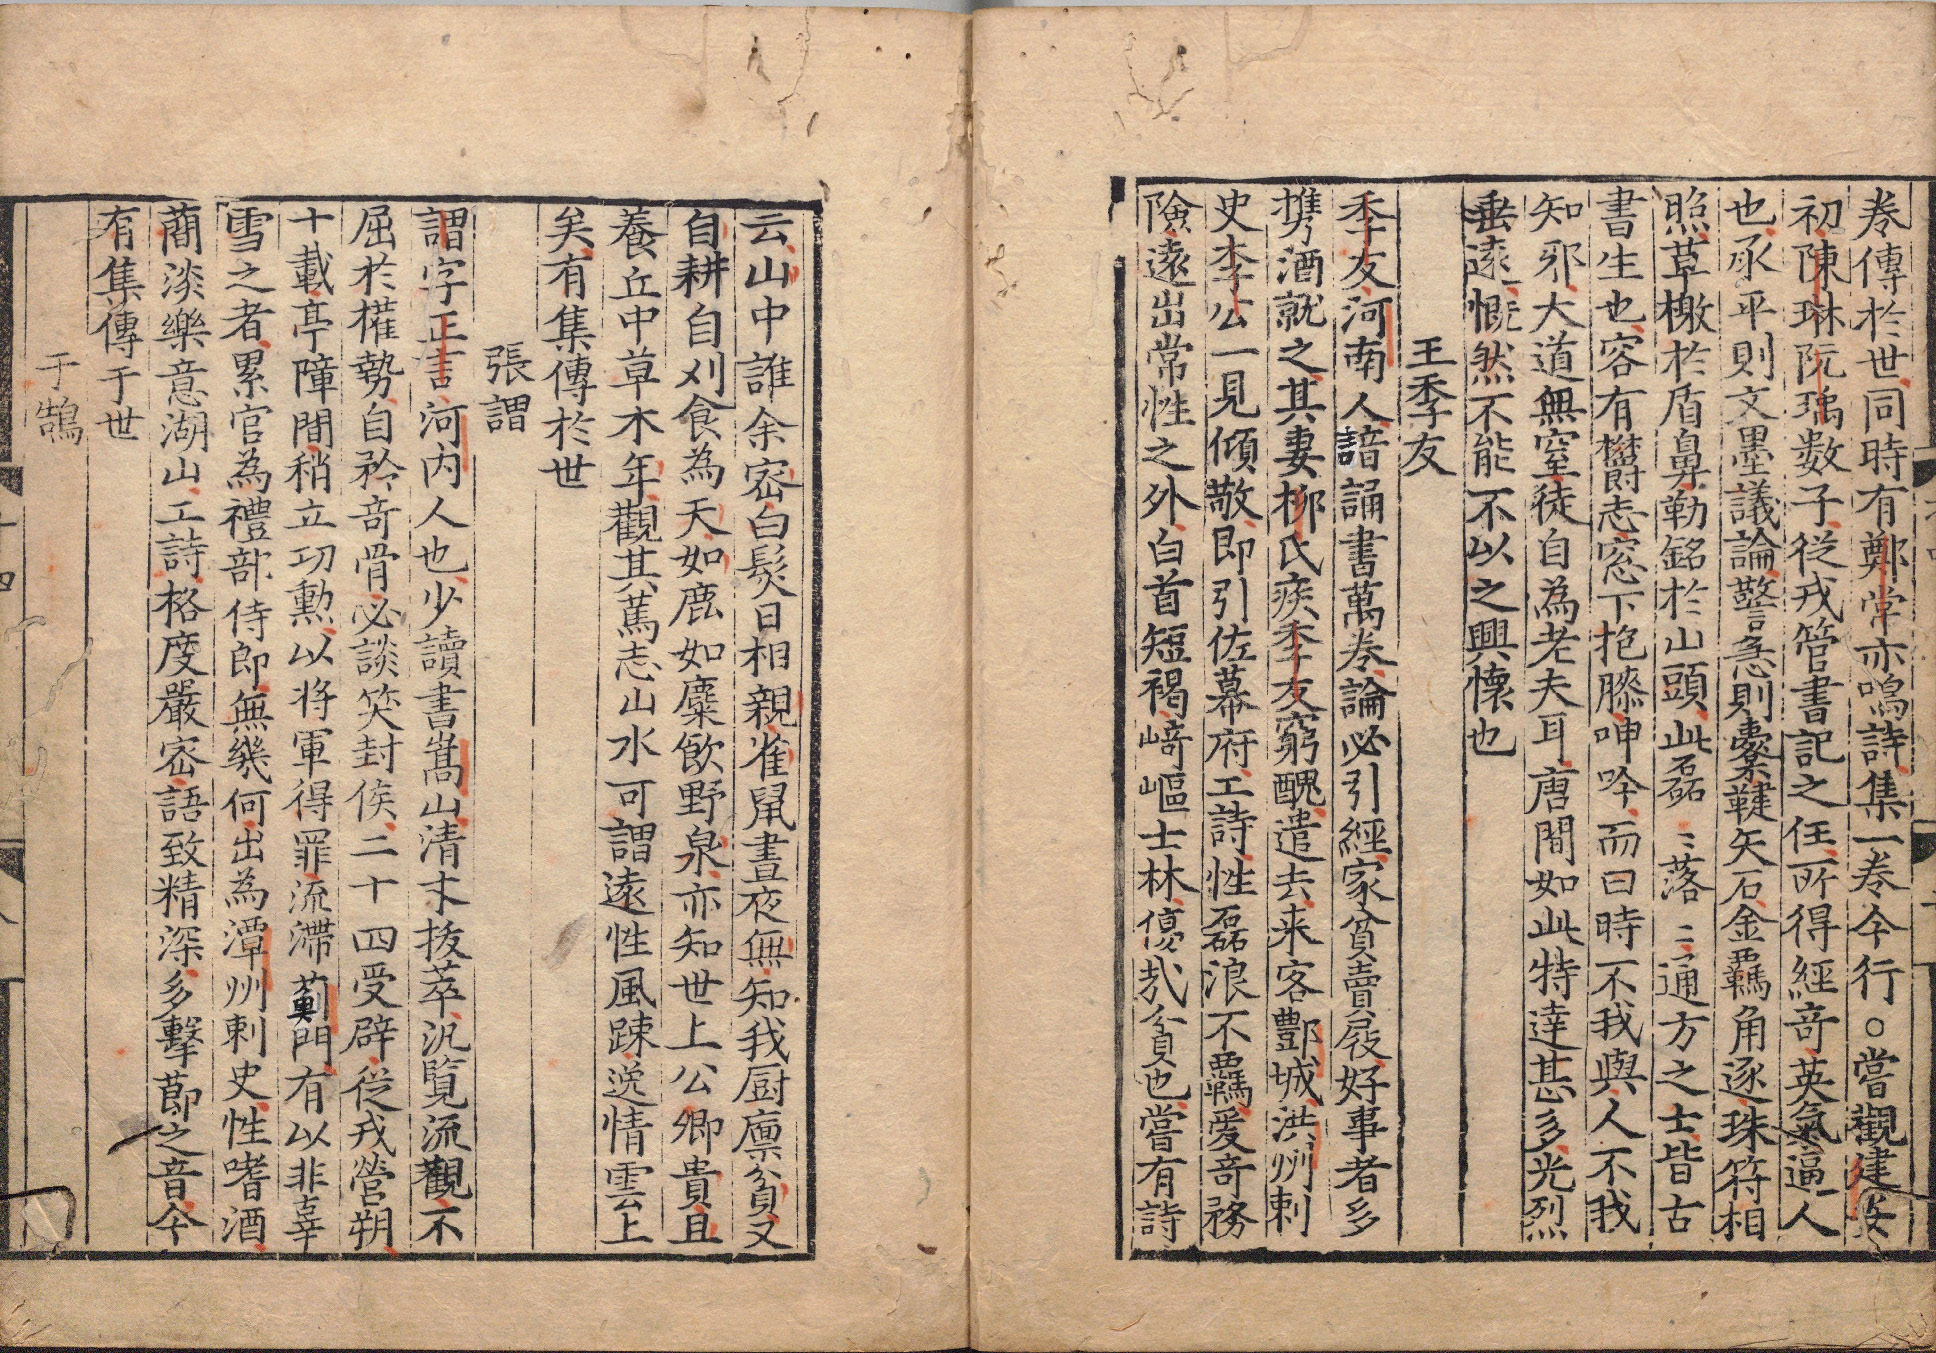 卷傳於世同時有鄭常亦鳴詩集一卷今行○嘗觀建安
初陳琳阮瑀数子從戎管書記之任所得經奇英氣逼人
也承平則文墨議論警急則櫜鞬矢石金覊角逐珠符相
照草檄於盾鼻勒銘於山頭此磊〻落〻通方之士皆古
書生也容有欝志窓下抱膝呻吟而曰時不我與人不我
知邪大道無窒徒自為老夫耳唐間如此特達甚多光烈
垂遠慨然不能不以之興懷也
王季友
季友河南人諳誦書萬卷論必引經家貧賣屐好事者多
携酒就之其妻柳氏疾季友窮醜遣去来客酆城洪州刺
史李公一見傾敬即引佐幕府工詩性磊浪不覊愛奇務
險遠出常性之外白首短褐崎嶇士林傷哉貧也嘗有詩
云山中誰余宻白髮日相親雀鼠晝夜無知我厨廪貧又
自耕自刈食為天如鹿如麋飲野泉亦知世上公卿貴且
養丘中草木年觀其篤志山水可謂遠性風踈逸情雲上
矣有集傳於世
張謂
謂字正言河内人也少讀書嵩山清才抜萃汎覽流觀不
屈於權勢自矜奇骨必談笑封侯二十四受辟從戎營朔
十載亭障間稍立功勲以将軍得罪流滯薊門有以非辜
雪之者累官為禮部侍郎無幾何出為潭州刺史性嗜酒
蕳淡樂意湖山工詩格度嚴宻語致精深多擊莭之音今
有集傳于世
于鵠